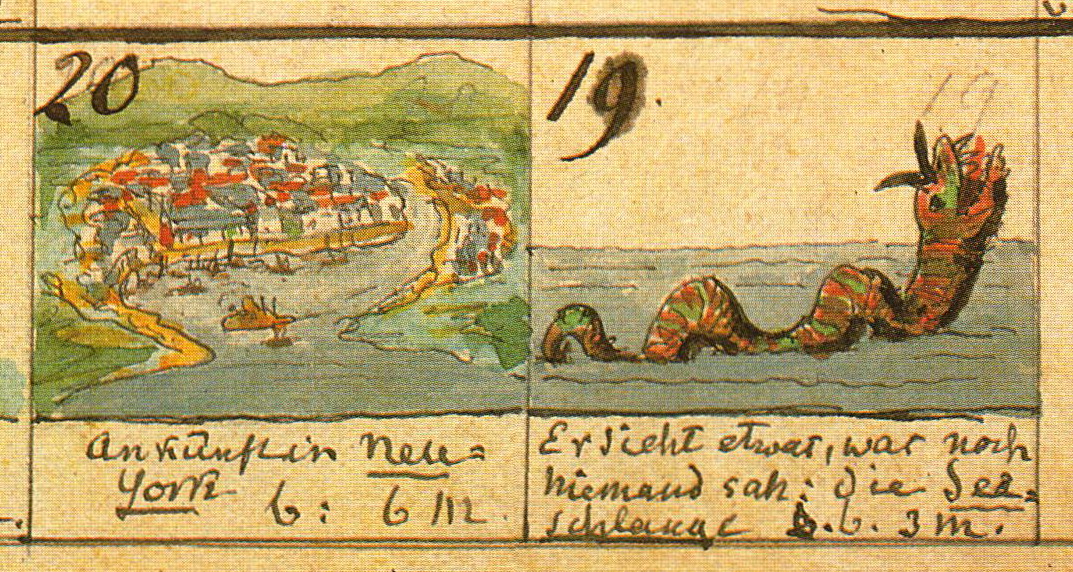 20
Ankunft in Neu=
York b: 6 M.
19.
19
Er sieht etwas, was noch
niemand sah: die See=
schlange b. 3 M.